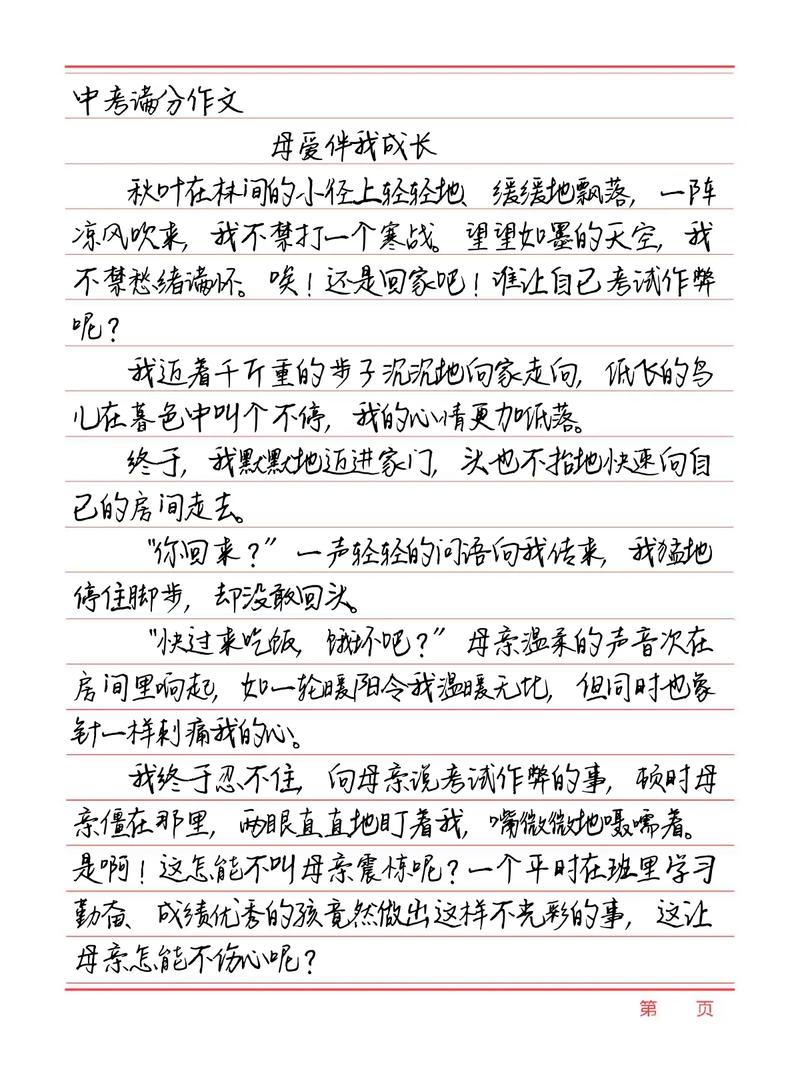 中考满分作文
母爱伴我成长
秋叶在林间的小径上轻轻地、缓缓地飘落，一阵
凉风吹来，我不禁打一个寒战。望望如墨的天空，我
不禁愁绪满怀。唉！还是回家吧！谁让自己考试作弊
呢？
我迈着千斤重的步子沉沉地向家走向，低飞的鸟
儿在暮色中叫个不停，我的心情更加低落。
终于，我默默地迈进家门，头也不抬地快速向自
己的房间走去。
“你回来？”一声轻轻的问语向我传来，我猛地
停住脚步，却没敢回头。
“快过来吃饭，饿坏吧？”母亲温柔的声音次在
房间里响起，如一轮暖阳令我温暖无比，但同时也象
针一样刺痛我的心。
我终于忍不住，向母亲说考试作弊的事，顿时母
亲僵在那里，两眼直直地盯着我，嘴微微地嗫嚅着。
是啊！这怎能不叫母亲震惊呢？一个平时在班里学习
勤奋、成绩优秀的孩竟然做出这样不光彩的事，这让
母亲怎能不伤心呢？
第 页